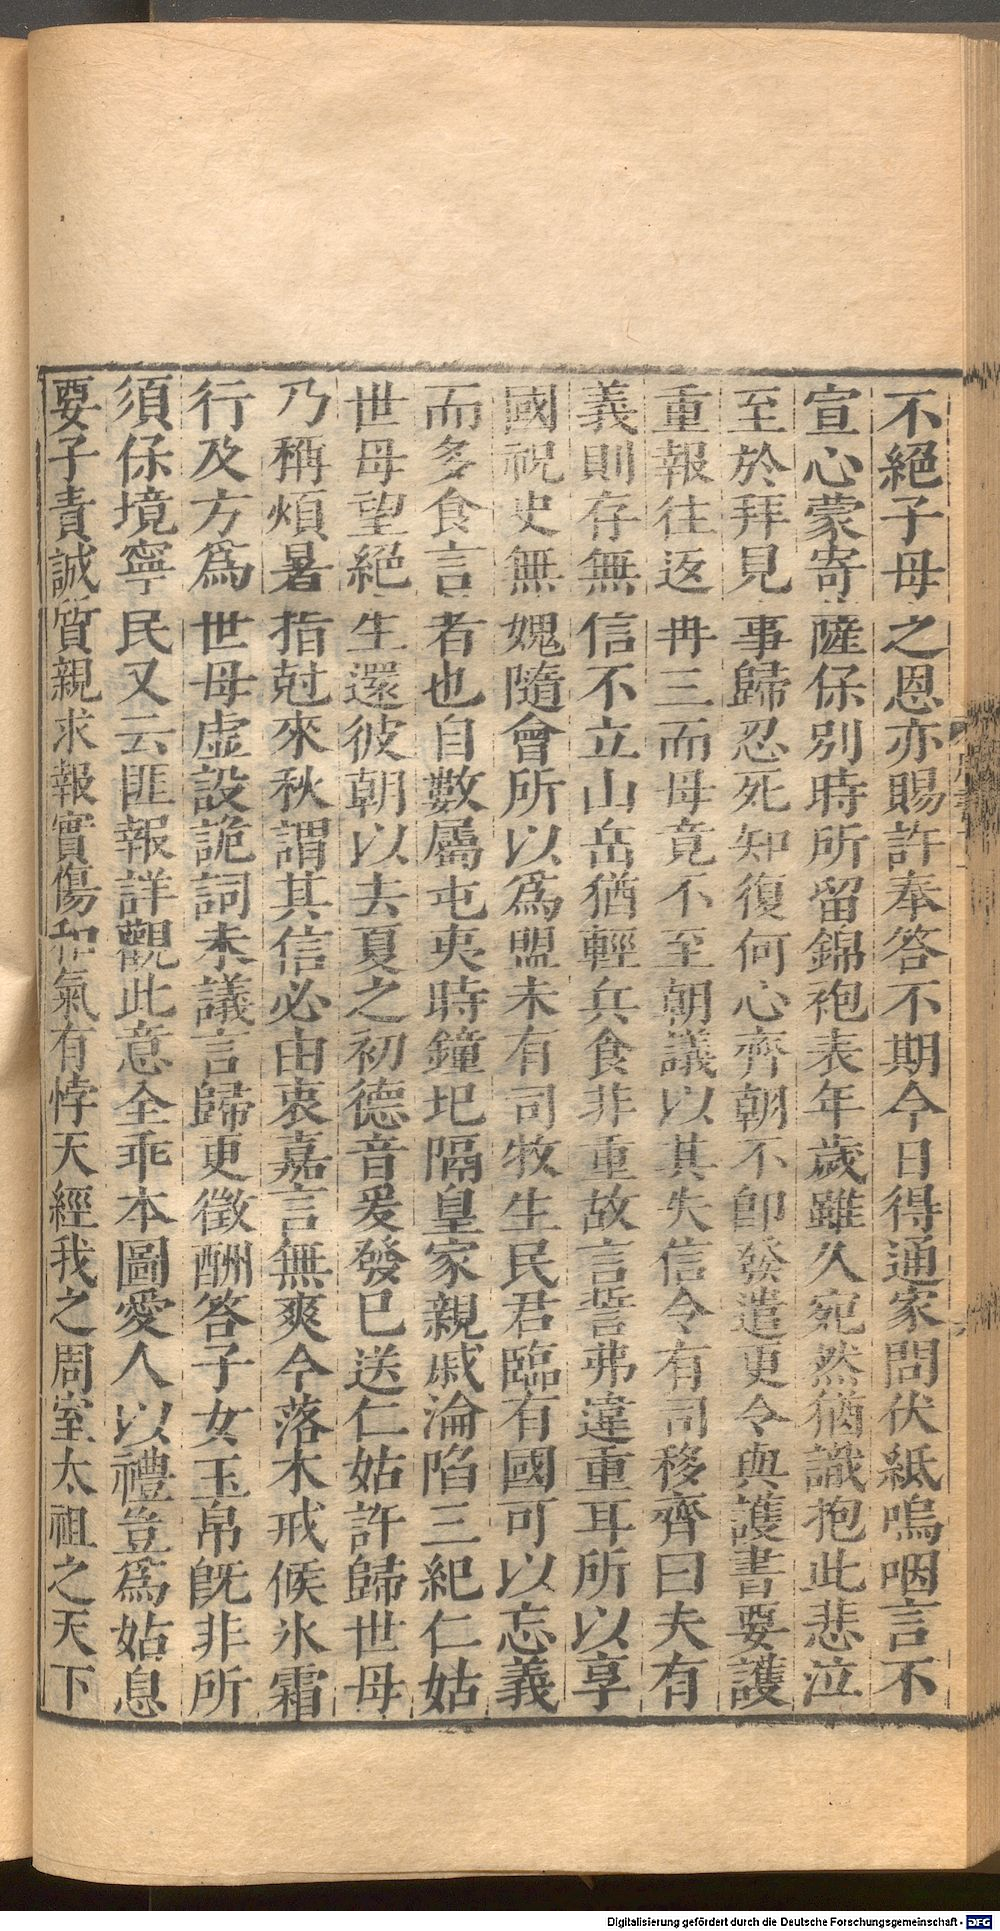 不絕子母之恩亦賜許奉答不期今日得通家問伏紙嗚咽言不
宣心蒙寄薩保別時所留錦袍表年歲雖久宛然猶識抱此悲泣
至於拜見事歸忍死知復何心齊朝不卽發遣更令與護書要護
重報往返冉三而母竟不至朝議以其失信令有司移齊曰夫有
義則存無信不立山岳猶輕兵食非重故言誓弗違重耳所以享
國祝史無媿隨會所以爲盟未有司牧生民君臨有國可以忘義
而多食言者也自數屬屯夷時鐘圯隔皇家親戚淪陷三紀仁姑
世母望絕生還彼朝以去夏之初德音爰發巳送仁姑許歸世母
乃稱煩暑指尅來秋謂其信必由衷嘉言無爽今落木戒候氷霜
行及方爲世母虛設詭詞未議言歸更徵酬答子女玉帛旣非所
須保境寧民又云匪報詳觀此意全乖本圖愛人以禮豈爲姑息
要子責誠質親求報實傷和氣有悖天經我之周室太祖之天下
Digitalisierung gefördert durch die Deutsche Forschungsgemeinschaft - DFG